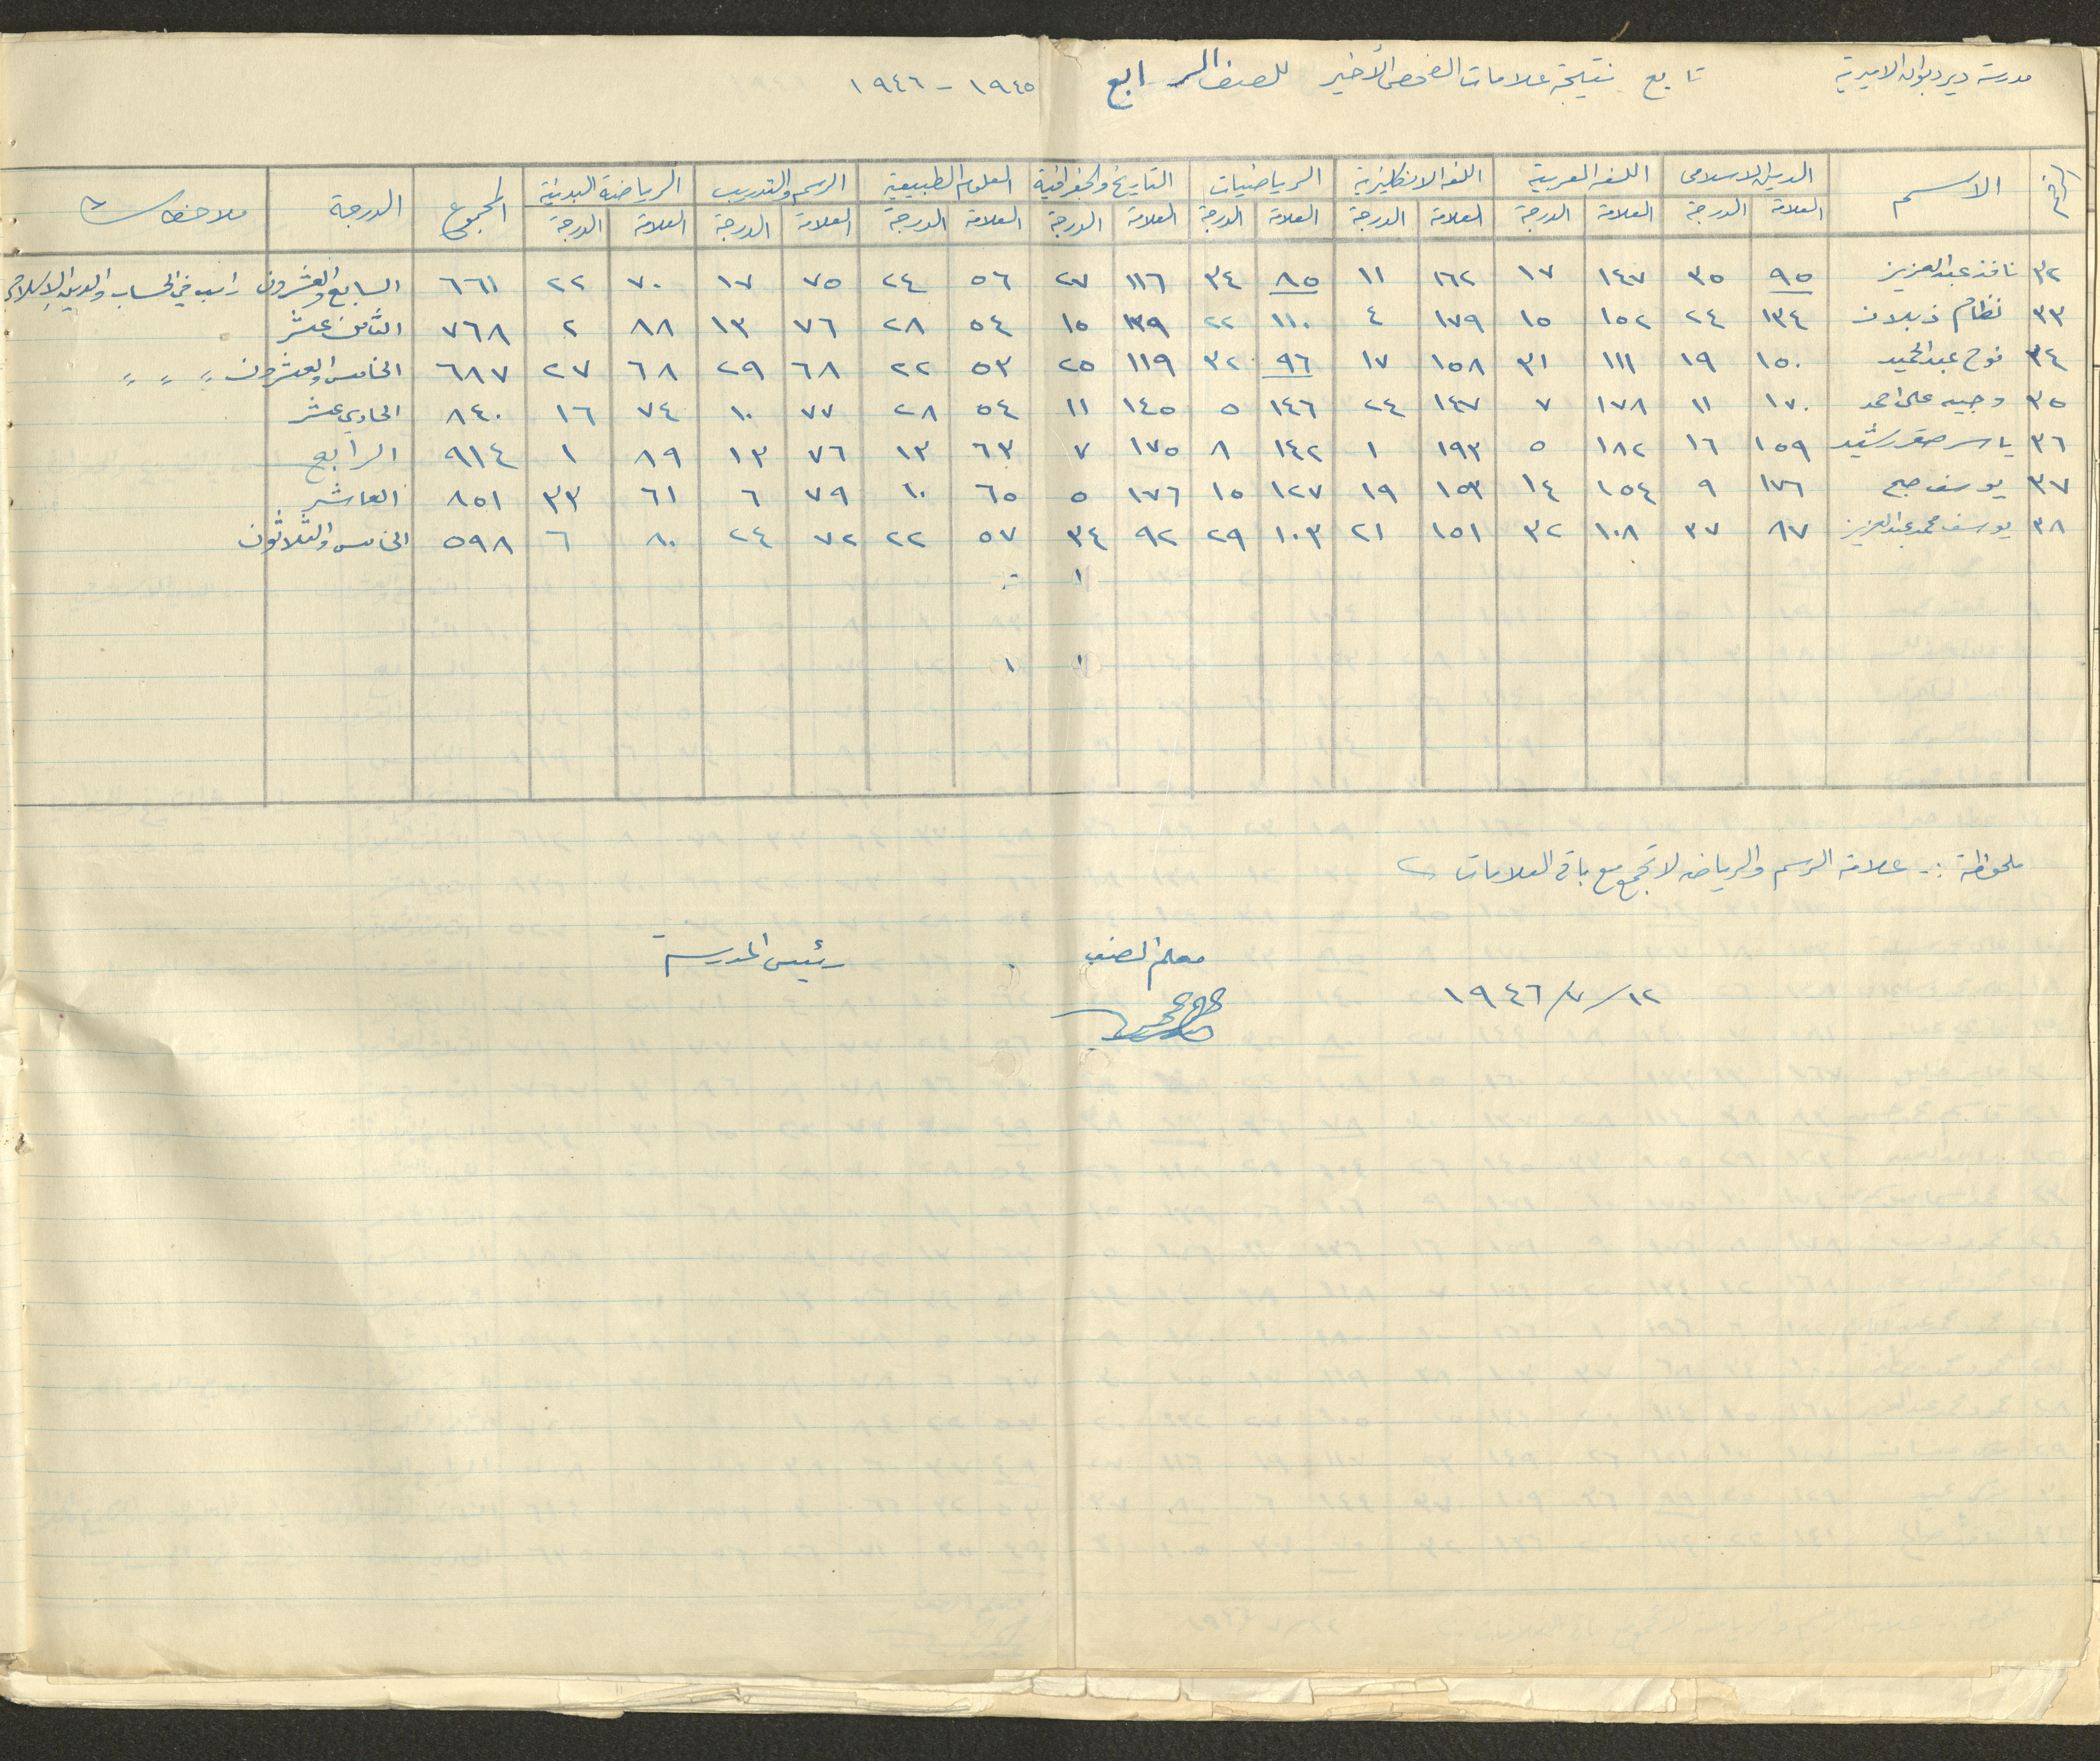 مدرسة ديرديوان الاميرية تابع نتيجة علامات الفحص الأخير للصف الرابع ١٩٤٥ - ١٩٤٦
الرقم الاسم الدين الاسلامي اللغة العربية اللغة الانكليزية الرياضيات التاريخ والجغرافية العلوم الطبيعية الرسم والتدريب الرياضة البدنية المجموع الدرجة ملاحظات
العلامة الدرجة العلامة الدرجة العلامة الدرجة العلامة الدرجة العلامة الدرجة العلامة الدرجة العلامة الدرجة العلامة الدرجة
٣٢ نافذ عبد العزيز ٩٥ ٣٥ ١٤٧ ١٧ ١٦٢ ١١ ٨٥ ٣٤ ١١٦ ٢٧ ٥٦ ٢٤ ٧٥ ١٧ ٧٠ ٢٢ ٦٦١ السابع والعشرون راسب في الحساب والدين الاسلامي
٣٣ نظام ذبلان ١٣٤ ٢٤ ١٥٢ ١٥ ١٧٩ ٤ ١١٠ ٢٢ ١٣٩ ١٥ ٥٤ ٢٨ ٧٦ ١٣ ٨٨ ٢ ٧٦٨ الثامن عشر
٣٤ نوح عبد الحميد ١٥٠ ١٩ ١١١ ٣١ ١٥٨ ١٧ ٩٦ ٣٢ ١١٩ ٢٥ ٥٣ ٢٢ ٦٨ ٢٩ ٦٨ ٢٧ ٦٨٧ الخامس والعشرون " " " "
٣٥ وجيه علي احمد ١٧٠ ١١ ١٧٨ ٧ ١٤٧ ٢٤ ١٤٦ ٥ ١٤٥ ١١ ٥٤ ٢٨ ٧٧ ١٠ ٧٤ ١٦ ٨٤٠ الحادي عشر
٣٦ ياسر صقر رشيد ١٥٩ ١٦ ١٨٢ ٥ ١٩٣ ١ ١٤٢ ٨ ١٧٥ ٧ ٦٣ ١٣ ٧٦ ١٣ ٨٩ ١ ٩١٤ الرابع
٣٧ يوسف صبح ١٧٦ ٩ ١٥٤ ١٤ ١٥٣ ١٩ ١٢٧ ١٥ ١٧٦ ٥ ٦٥ ١٠ ٧٩ ٦ ٦١ ٣٣ ٨٥١ العاشر
٣٨ يوسف محمد عبد العزيز ٨٧ ٣٧ ١٠٨ ٣٢ ١٥١ ٢١ ١٠٣ ٢٩ ٩٢ ٣٤ ٥٧ ٢٢ ٧٢ ٢٤ ٨٠ ٦ ٥٩٨ الخامس والثلاثون
ملحوظة :- علامة الرسم والرياضة لا تجمع مع باقي العلامات
معلم الصف رئيس المدرسة
١٢/٧/١٩٤٦